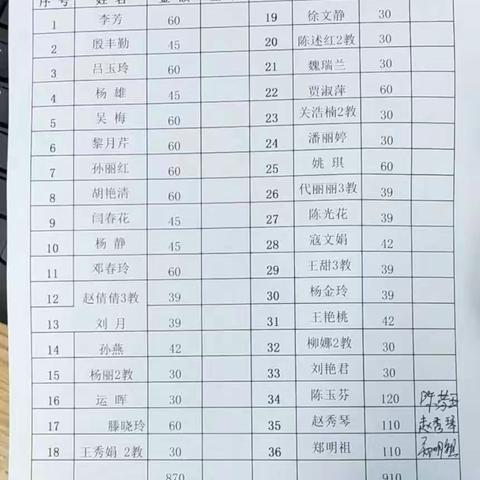 序 号 姓 名 金 额
1 李芳 60 19 徐文静 30
2 殷丰勤 45 20 陈述红2教 30
3 吕玉玲 60 21 魏瑞兰 30
4 杨 雄 45 22 贾淑萍 60
5 吴 梅 60 23 关浩楠2教 30
6 黎月芹 60 24 潘丽婷 30
7 孙丽红 60 25 姚 琪 60
8 胡艳清 60 26 代丽丽3教 39
9 闫春花 45 27 陈光花 39
10 杨 静 45 28 寇文娟 42
11 邓春玲 60 29 王甜3教 39
12 赵倩倩3教 39 30 杨金玲 39
13 刘 月 39 31 王艳桃 42
14 孙燕 42 32 柳娜2教 30
15 杨丽2教 30 33 刘艳君 30
16 运 晖 30 34 陈玉芬 120
17 滕晓玲 60 35 赵秀琴 110 赵秀琴
18 王秀娟 2教 30 36 郑明祖 110 郑明祖
870 910